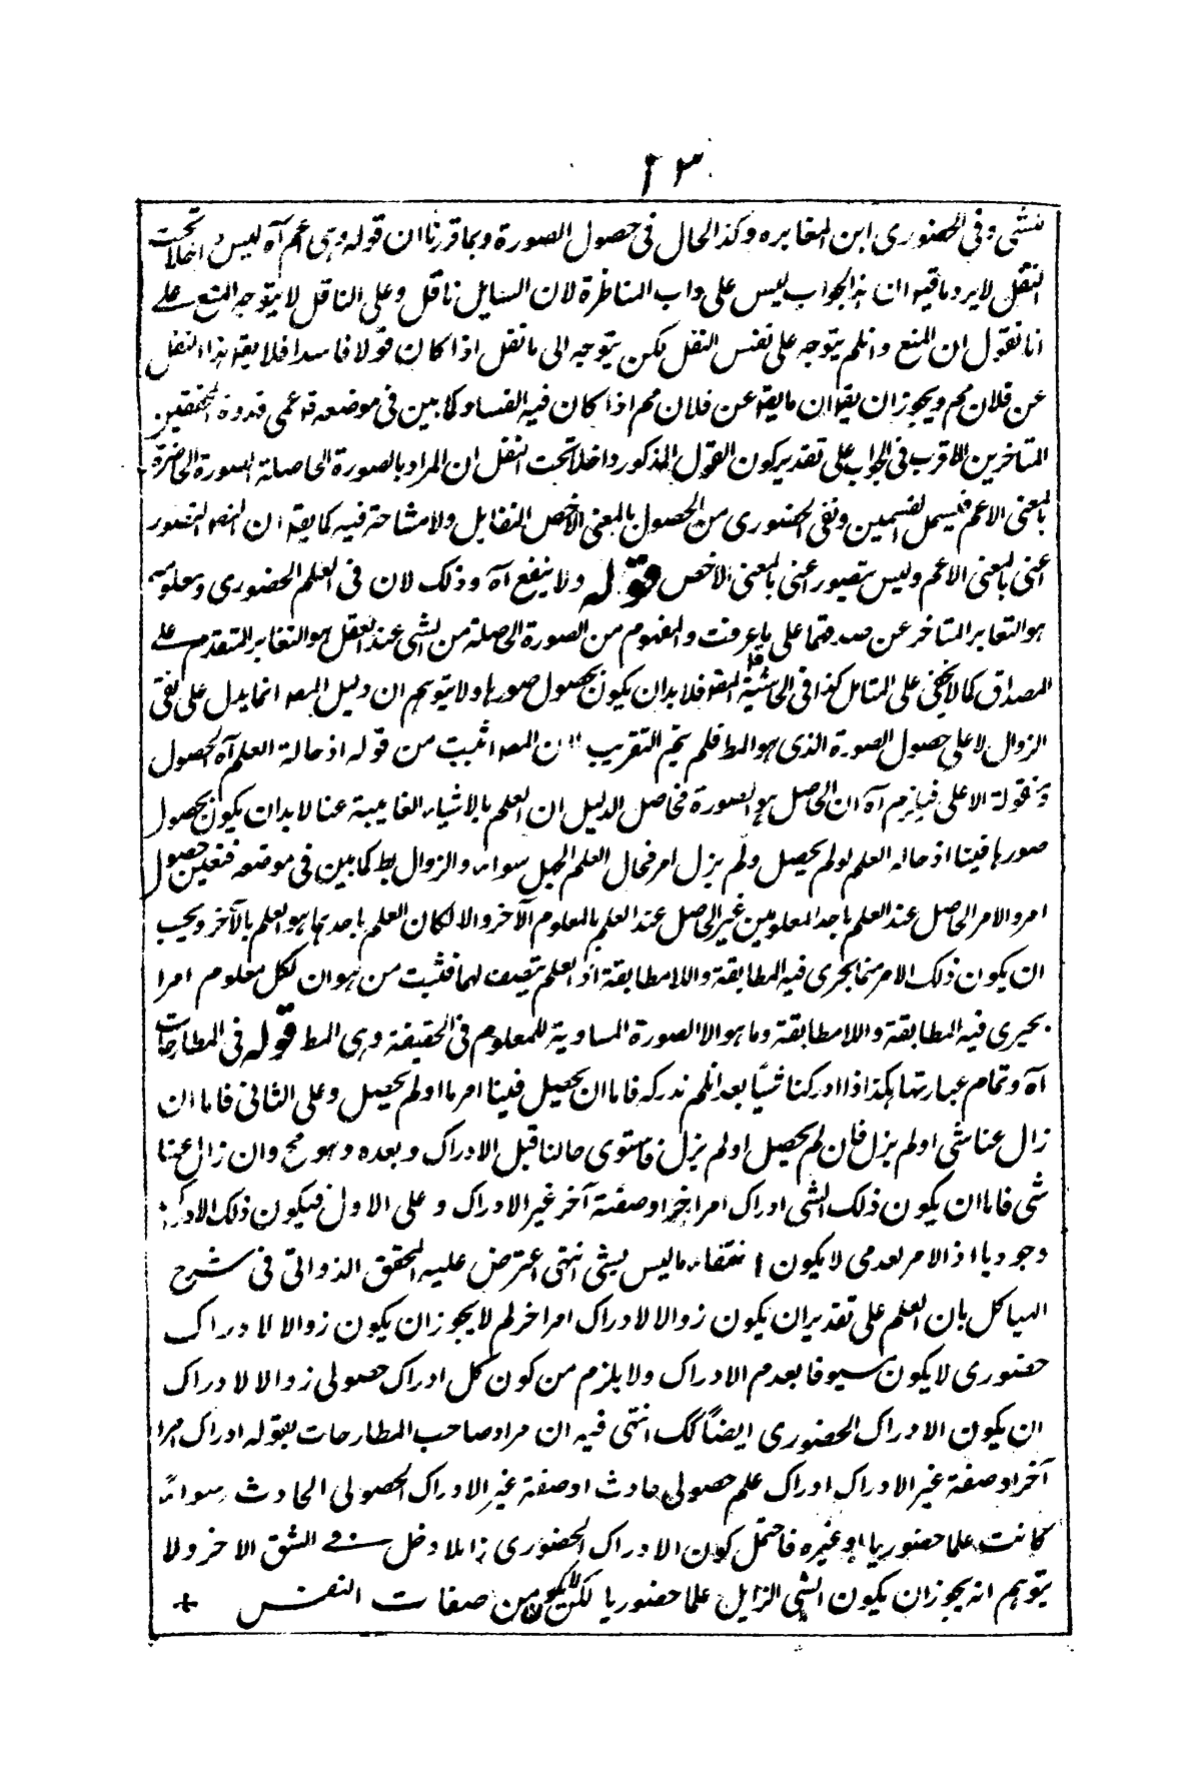 ٢٣
للشيء وفي الحضوري اين المغايره وكذا الحال في حصول الصورة وبما قررنا ان قوله وهي اعم آه ليس داخلا تحت
النقل لا يرد ما قيل ان هذا الجواب ليس على داب المناظرة لان السايل ناقل وعلى الناقل لا يتوجه المنع على
انا نقول ان المنع وانلم يتوجه على نفس النقل لكن يتوجه الى ما نقل اذا كان قولا فاسدا فلا يقه هذا النقل
عن فلان مم ويجوز ان يقه ان ما يقه عن فلان مم اذا كان فيه الفساد كما بين في موضعه قه عمي قدوة المحققين
المتاخرين الاقرب في الجواب على تقدير كون القول المذكور داخلا تحت النقل ان المراد بالصورة الحاصلة الصورة الحاضرة
بالمعنى الاعم فيشمل القسمين ونفى الحضوري من الحصول بالمعنى الاخص المقابل ولا مشاحة فيه كما يقه ان التصور
اعنى بالمعنى الاعم وليس بتصور اعنى بالمعنى الاخص قوله ولا ينفع آه وذلك لان في العلم الحضوري ومعلومه
هو التغاير المتاخر عن صدقهما على ما عرفت والمفهوم من الصورة الحاصلة من الشي عند العقل هو التغاير المتقدم على
المصداق كما لا يخفى على المتامل كذا في الحاشية قوله فلا بد ان يكون بحصول صورها ولا يتوهم ان دليل المصه انما يدل على نفى
الزوال لا على حصول الصورة الذي هو المط فلم يتم التقريب لان المصه اثبت من قوله اذ حالة العلم آه الحصول
وبقوله الاعلى فيلزم آه ان الحاصل هو الصورة فحاصل الدليل ان العلم بالاشياء الغايبة عنا لا بد ان يكون بحصول
صورها فينا اذ حاله العلم لو لم يحصل ولم يزل امر فحال العلم والجهل سواء والزوال بط كما بين في موضعه فتعين حصول
امر والامر الحاصل عند العلم باحد المعلومين غير الحاصل عند العلم بالمعلوم الآخر والا لكان العلم باحدهما هو العلم بالآخر ويجب
ان يكون ذلك الامر مما يجرى فيه المطابقة واللامطابقة اذ العلم يتصف بهما فثبت من هذا ان لكل معلوم امرا
يجرى فيه المطابقة واللامطابقة وما هو الا الصورة المساوية للمعلوم في الحقيقة وهى المط قوله في المطارحات
آه وتمام عبارتها هكذا اذا ادركنا شيئا بعد انلم ندركه فاما ان يحصل فينا امر ما او لم يحصل وعلى الثاني فاما ان
زال عنا شي او لم يزل فان لم يحصل او لم يزل فاستوى حالنا قبل الادراك وبعده وهو مح وان زال عنا
شي فاما ان يكون ذلك الشي ادراك امر آخر او صفة آخر غير الادراك وعلى الاول فيكون ذلك الادراك
وجوديا اذ الامر العدمي لا يكون انتفاء ما ليس بشي انتهى اعترض عليه المحقق الدواني في شرح
الهياكل بان العلم على تقدير ان يكون زوالا لادراك امر اخر لم لا يجوز ان يكون زوالا لادراك
حضوري لا يكون مسبوقا بعدم الادراك ولا يلزم من كون كل ادراك حصولى زوالا لادراك
ان يكون الادراك الحضوري ايضا كك انتهى فيه ان مراد صاحب المطارحات بقوله ادراك امر
آخر او صفة غير الادراك ادراك علم حصولي حادث او صفة غير الادراك الحصولي الحادث سواء
كانت علما حضوريا او غيره فاحتمل كون الادراك الحضوري زايلا دخل في الشق الاخر ولا
يتوهم انه يجوز ان يكون الشي الزايل علما حضوريا لكن لا يكون من صفات النفس +